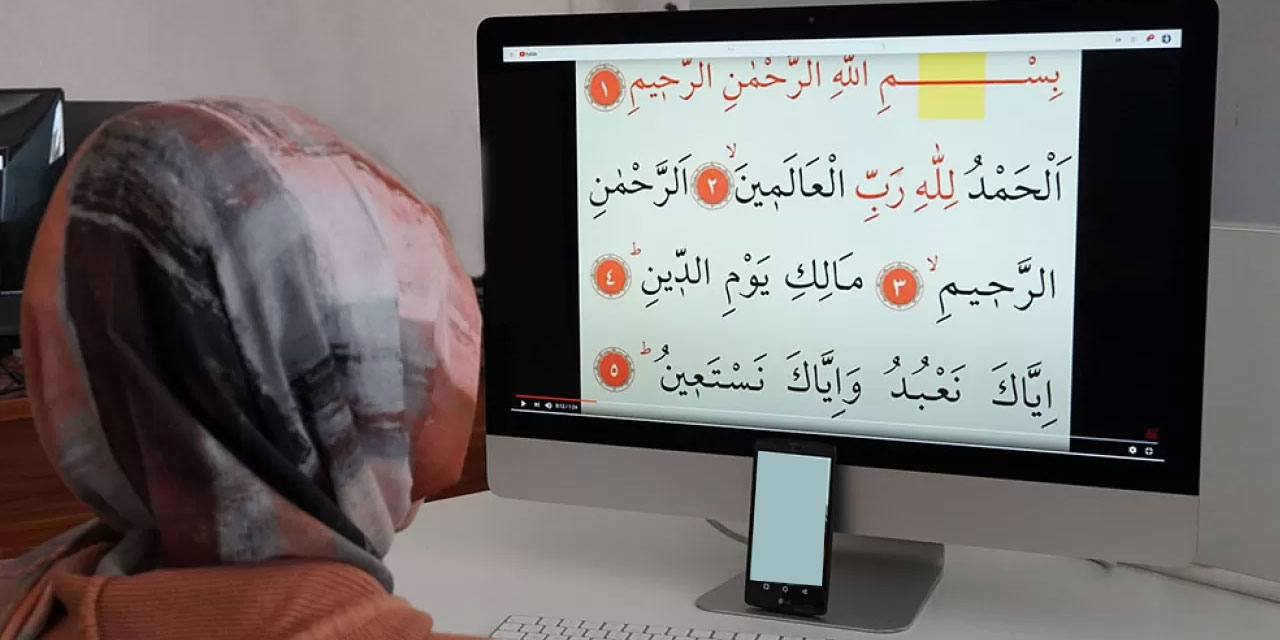 YouTube
بِسْــــــــمِ اللّٰهِ الرَّحْمٰنِ الرَّحٖيمِ ١
اَلْحَمْدُ لِلّٰهِ رَبِّ الْعَالَمٖينَ ۙ ٢ اَلرَّحْمٰنِ
الرَّحٖيمِ ۙ ٣ مَالِكِ يَوْمِ الدّٖينِ ؕ ٤
اِيَّاكَ نَعْبُدُ وَاِيَّاكَ نَسْتَعٖينُ ؕ ٥
LG